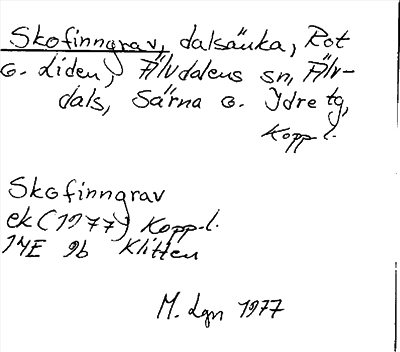 Skofinngrav, dalsänka, Rot
o. Liden, Älvdalens sn, Älv-
dals, Särna o. Idre tg,
Kopp l.
Skofinngrav
ek (1977) Kopp.l.
14E 9b Klitten
M. Lgn 1977